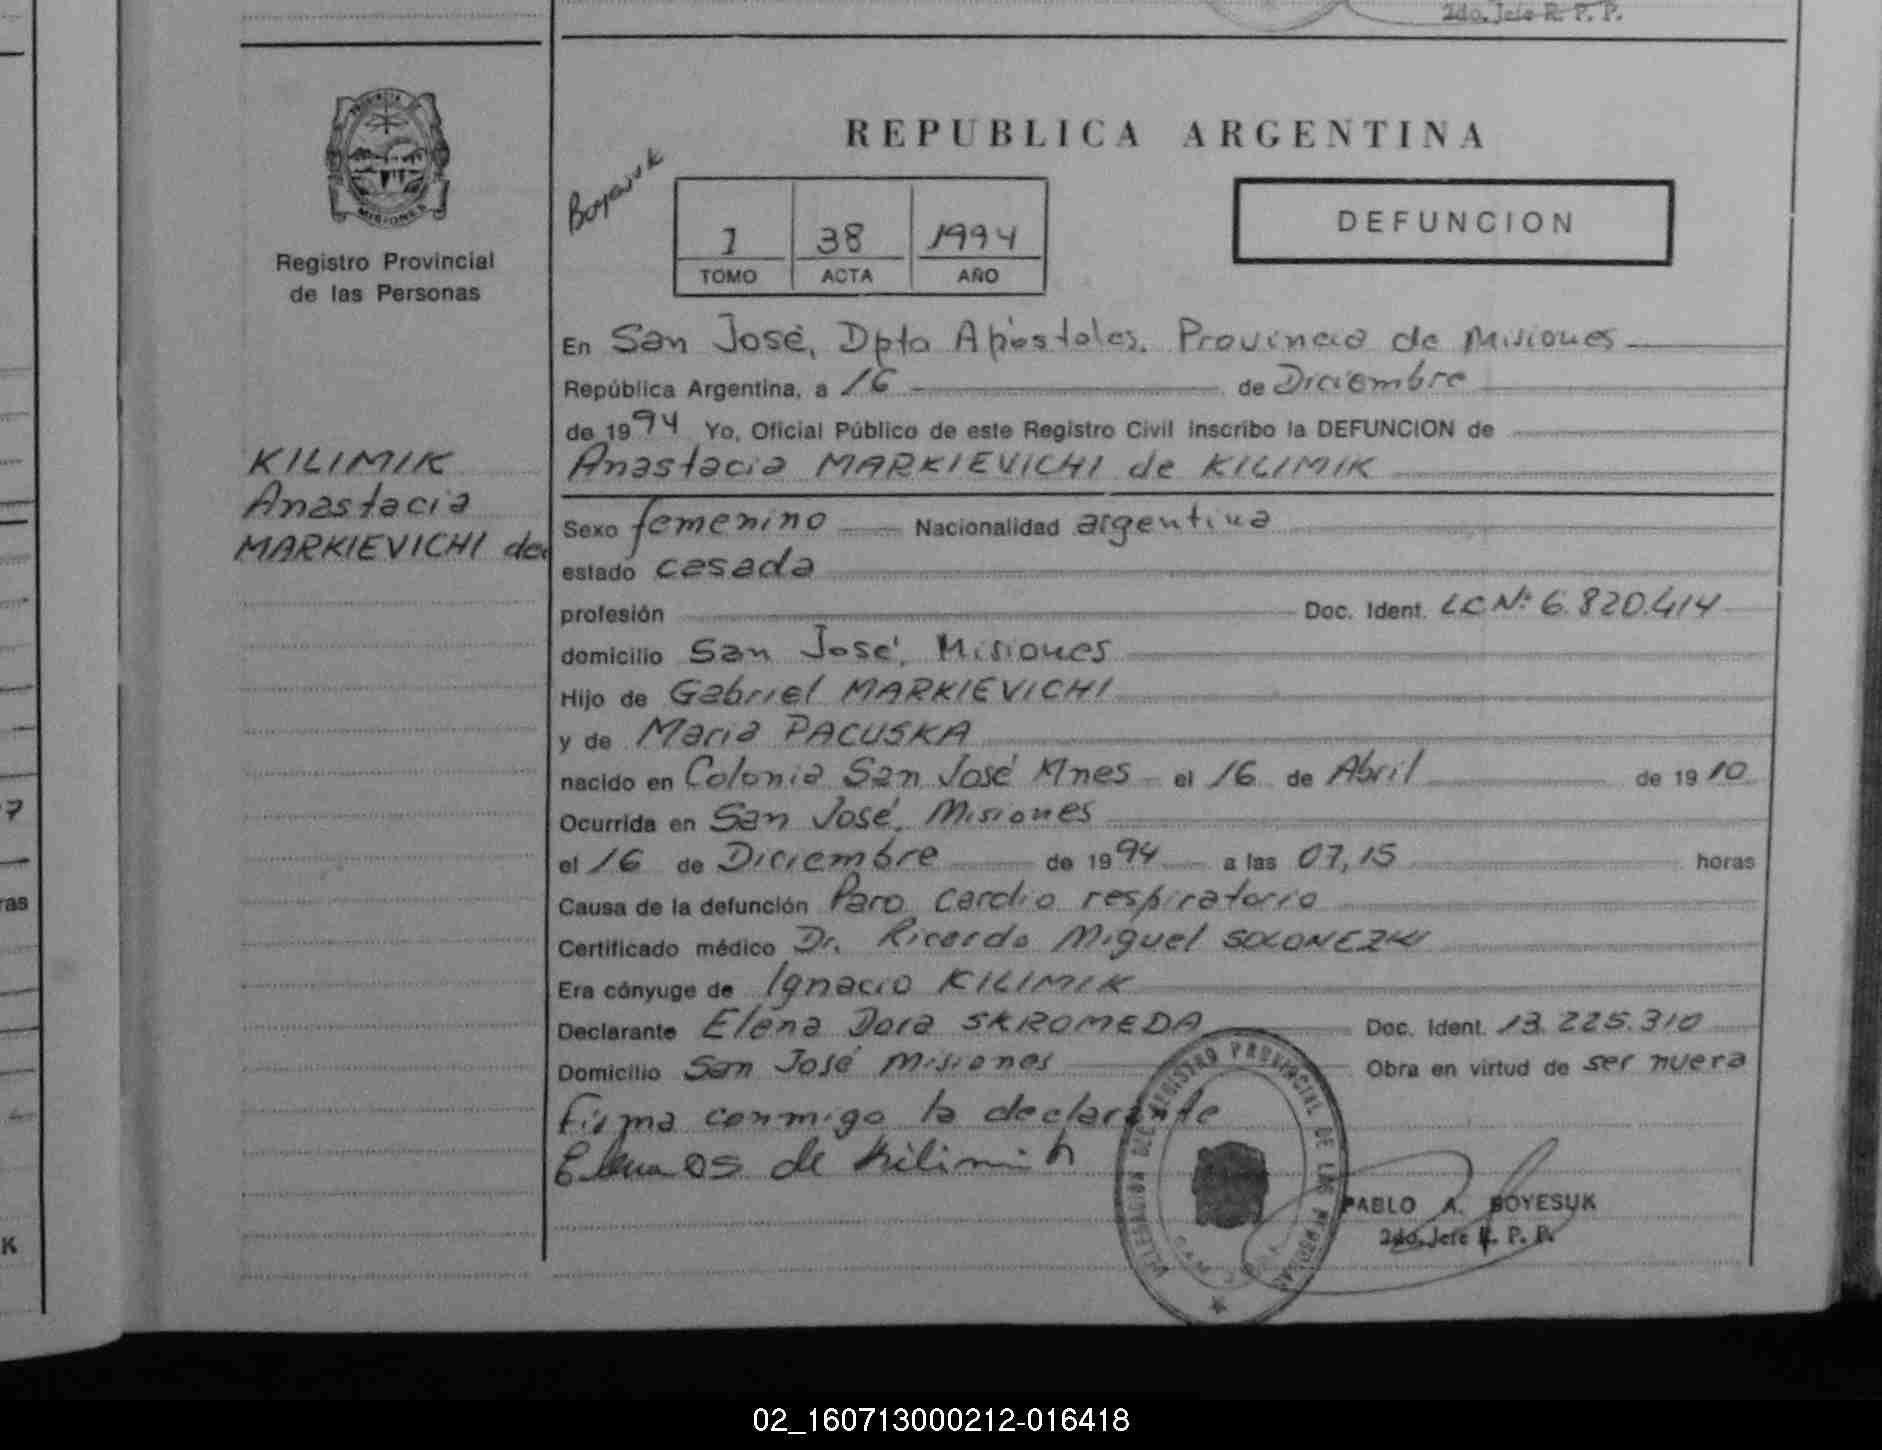 2do. Jefe R. P. P.
PROVINCIA DE
MISIONES
Registro Provincial
de las Personas
KILIMIK
Anastacia
MARKIEVICHI de
REPUBLICA ARGENTINA
Boyesuk
1 38 1994
TOMO ACTA AÑO
DEFUNCION
En San José, Dpto Apóstoles, Provincia de Misiones
República Argentina, a 16 de Diciembre
de 1994 Yo, Oficial Público de este Registro Civil inscribo la DEFUNCION de
Anastacia MARKIEVICHI de KILIMIK
Sexo femenino Nacionalidad argentina
estado casada
profesión Doc. Ident. LC Nº 6.820.414
domicilio San José, Misiones
Hijo de Gabriel MARKIEVICHI
y de Maria PACUSKA
nacido en Colonia San José Mnes el 16 de Abril de 1910
Ocurrida en San José, Misiones
el 16 de Diciembre de 1994 a las 07,15 horas
Causa de la defunción Paro cardio respiratorio
Certificado médico Dr. Ricardo Miguel SOLONEZKI
Era cónyuge de Ignacio KILIMIK
Declarante Elena Dora SKROMEDA Doc. Ident. 13.225.310
Domicilio San José Misiones Obra en virtud de ser nuera
Firma conmigo la declarante
Elena DS de Kilimik
DELEGACION DEL REGISTRO PROVINCIAL DE LAS PERSONAS
PABLO A. BOYESUK
2do. Jefe R. P. P.
7
ras
K
02_160713000212-016418